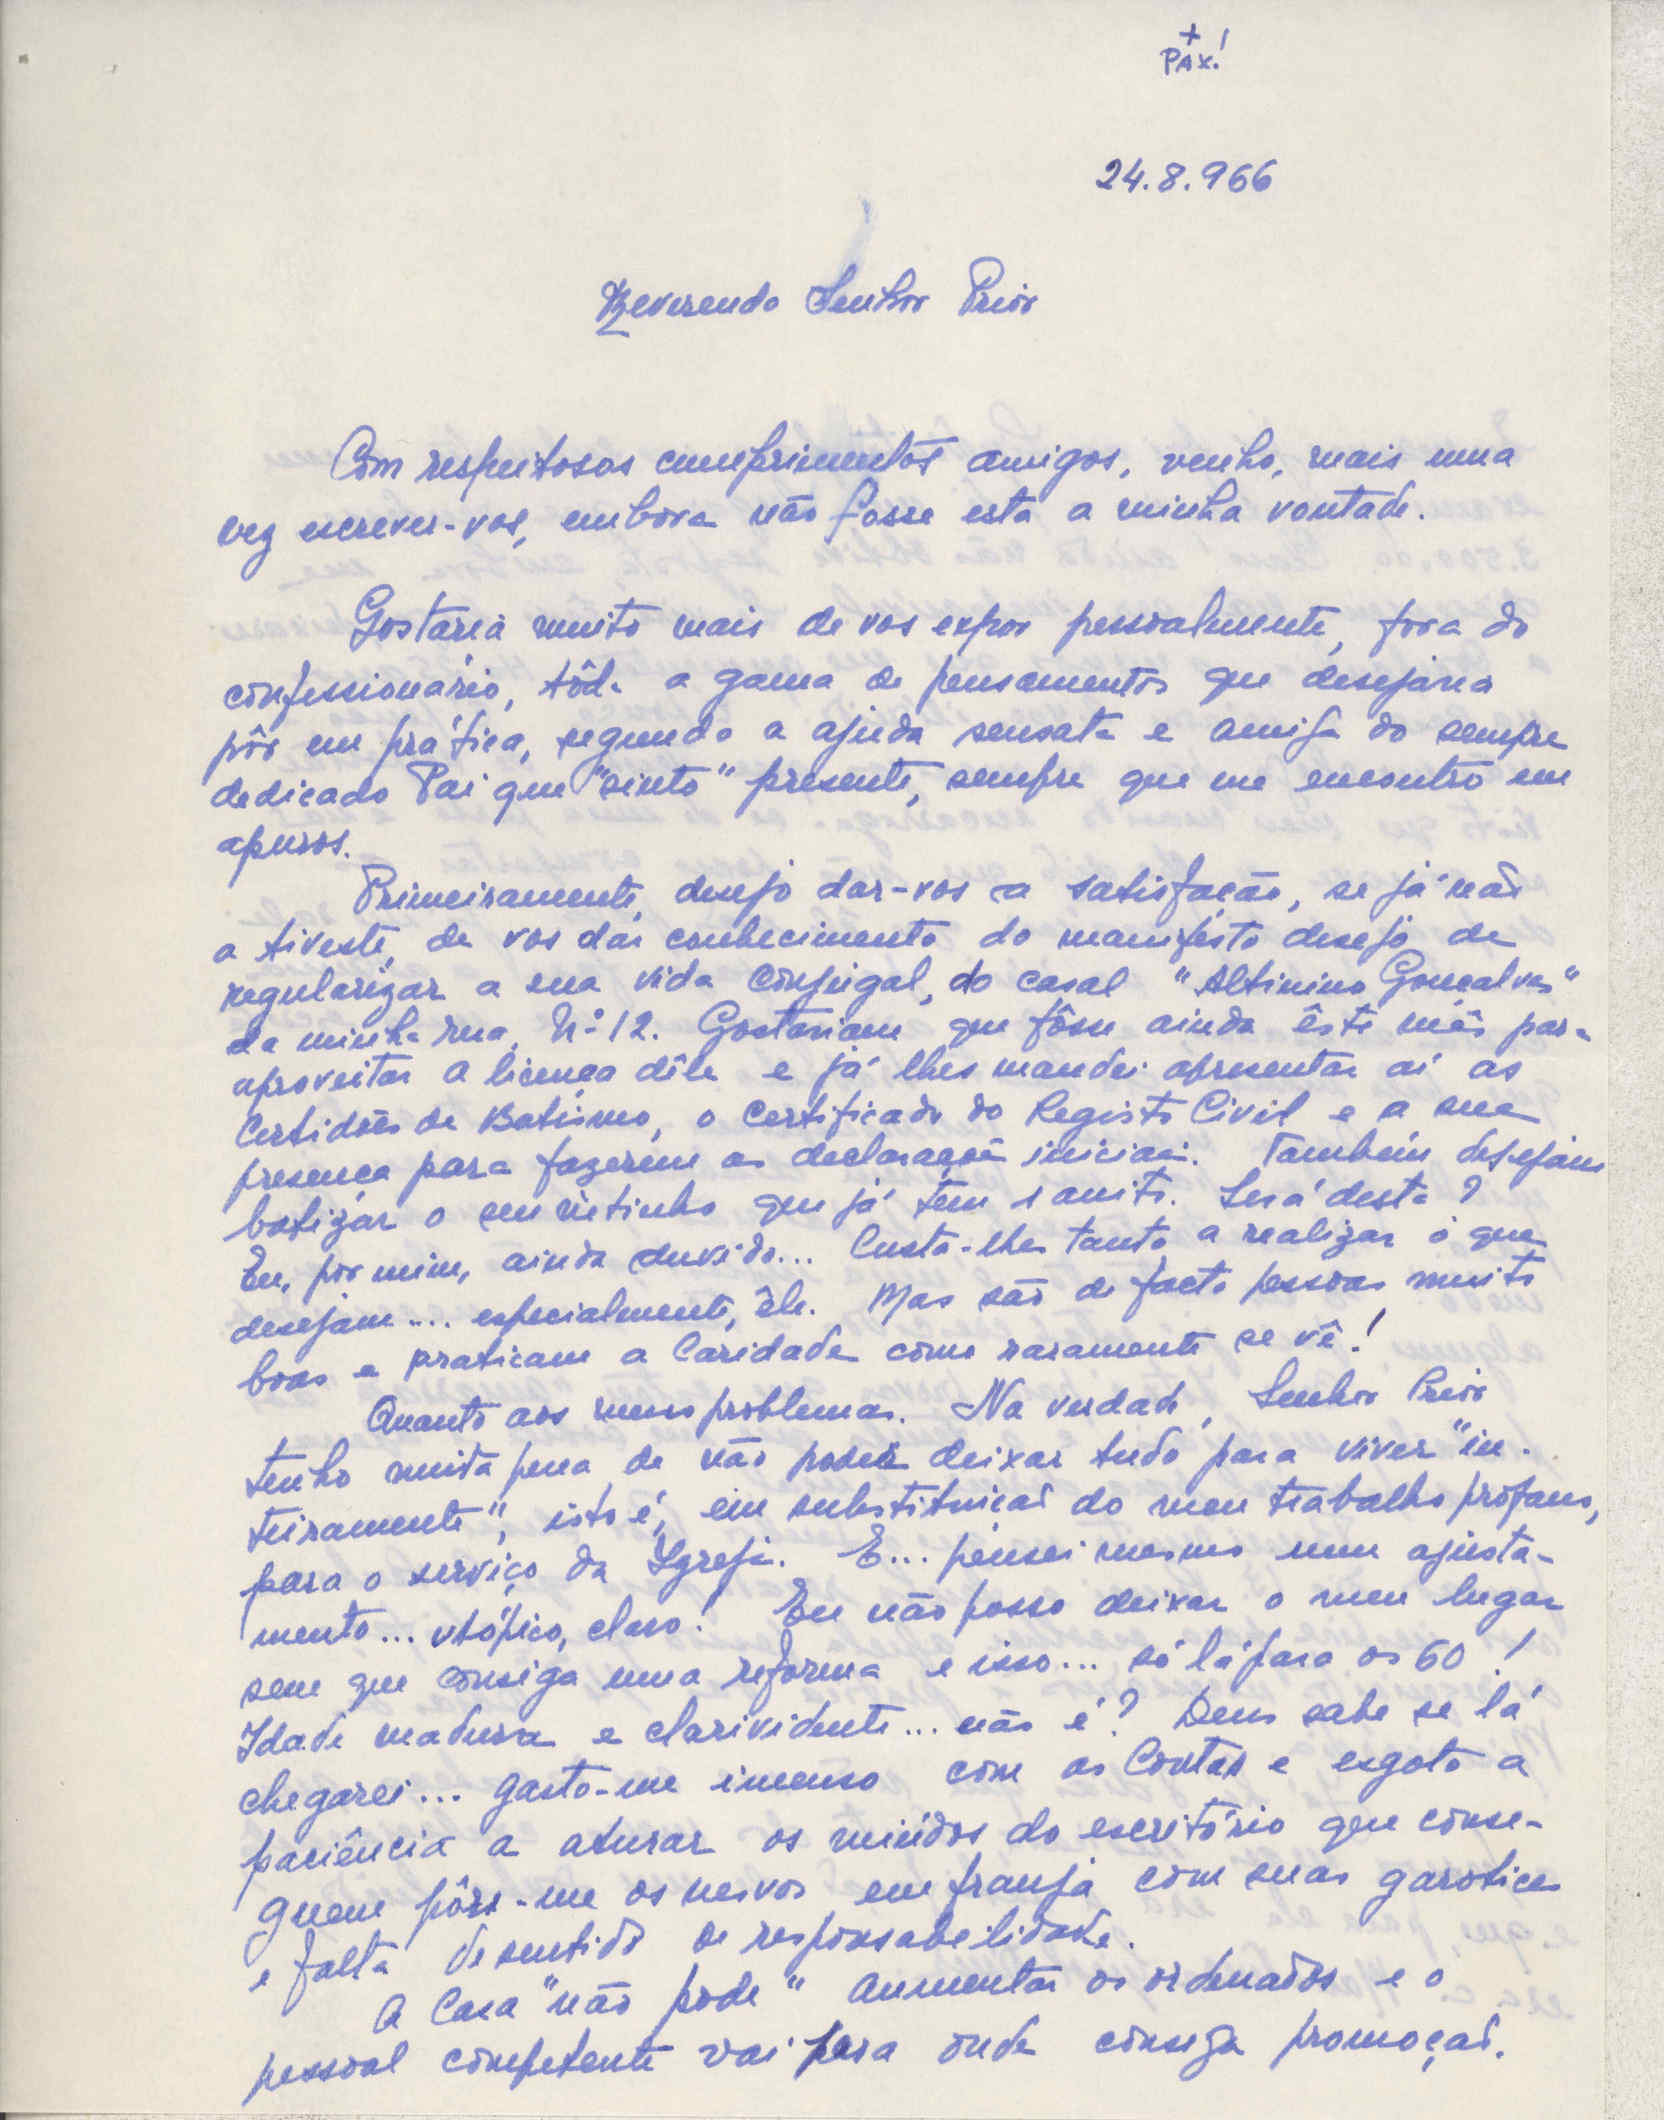 +
PAX!
24.8.966
Reverendo Senhor Prior
Com respeitosos cumprimentos amigos, venho, mais uma
vez escrever-vos, embora não fosse esta a minha vontade.
Gostaria muito mais de vos expor pessoalmente, fora do
confessionário, tôda a gama de pensamentos que desejaria
pôr em prática, segundo a ajuda sensata e amiga do sempre
dedicado Pai que "sinto" presente, sempre que me encontro em
apuros.
Primeiramente, desejo dar-vos a satisfação, se já não
a tiveste, de vos dar conhecimento do manifesto desejo de
regularizar a sua vida conjugal, do casal "Altinino Gonçalves"
da minha rua, Nº 12. Gostariam que fôsse ainda êste mês para
aproveitar a licença dêle e já lhes mandei apresentar aí as
Certidões de Batismo, o Certificado do Registo Civil e a sua
presença para fazerem as declarações iniciais. Também desejam
batizar o seu netinho que já tem 1 anito. Será desta?
Eu, por mim, ainda duvido... Custa-lhes tanto a realizar o que
desejam.... especialmente, êle. Mas são de facto pessoas muito
boas e praticam a Caridade como raramente se vê!
Quanto aos meus problemas. Na verdade, Senhor Prior
tenho muita pena de não poder deixar tudo para viver "in-
teiramente", isto é, em substituição do meu trabalho profano,
para o serviço da Igreja. E... pensei mesmo num ajusta-
mento... utópico, claro! Eu não posso deixar o meu lugar
sem que consiga uma reforma e isso... só lá para os 60!
Idade madura e clarividente... não é? Deus sabe se lá
chegarei... gasto-me imenso com as Contas e esgoto a
paciência a aturar os miúdos do escritório que conse-
guem pôr-me os nervos em franja com suas garotices
e falta de sentido de responsabilidade.
A Casa "não pode" aumentar os ordenados e o
pessoal competente vai para onde consiga promoção.